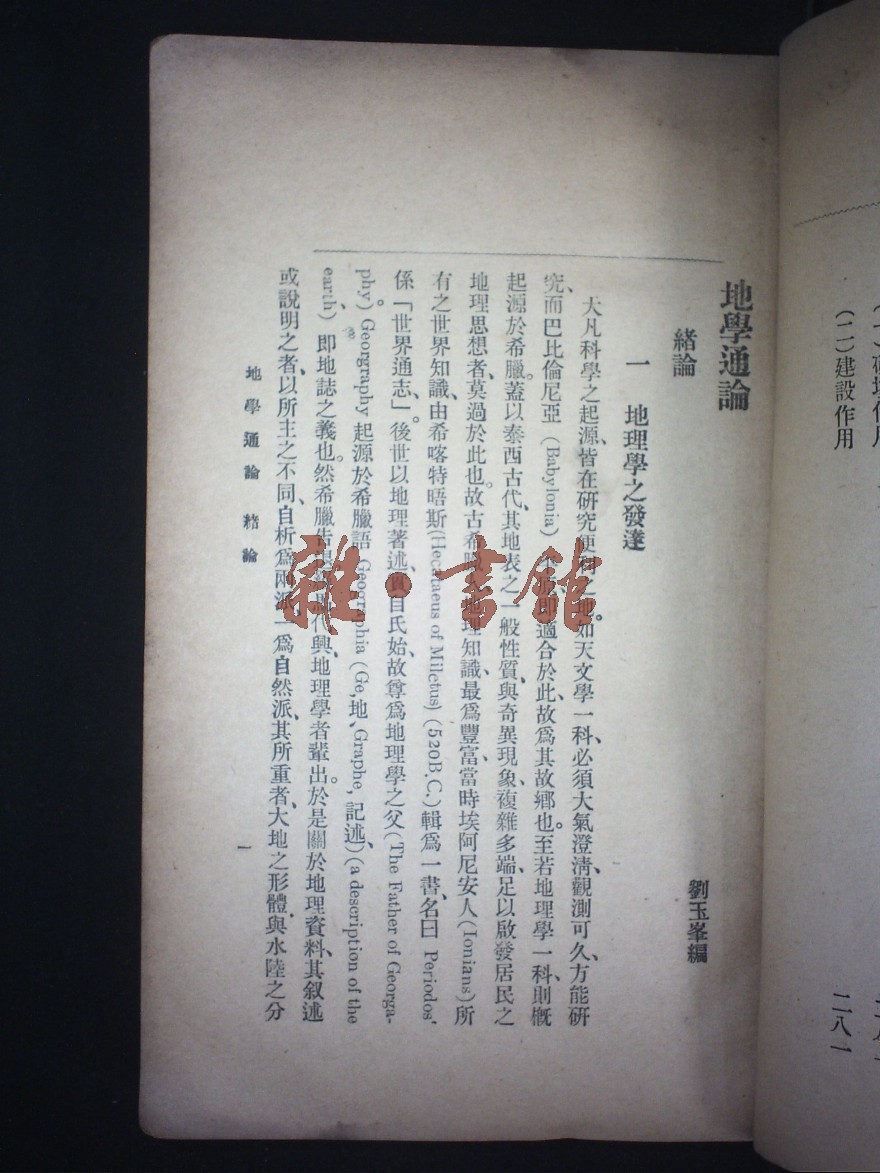 地學通論
劉玉峯編
緒論
一 地理學之發達
大凡科學之起源、皆在研究便利之地。如天文學一科、必須大氣澄淸、觀測可久、方能研
究、而巴比倫尼亞 (Babylonia) 適合於此、故爲其故鄉也。至若地理學一科、則槪
起源於希臘。蓋以泰西古代、其地表之一般性質、與奇異現象、複雜多端、足以啟發居民之
地理思想者、莫過於此也。故古希臘 地理知識、最爲豐富、當時埃阿尼安人(Ionians)所
有之世界知識、由希喀特晤斯(Hecataeus of Miletus) (520B.C.)輯爲一書、名曰 Periodos,
係「世界通志、」。後世以地理著述、實自氏始、故尊爲地理學之父(The Father of Georga-
phy)。Georgraphy 起源於希臘語 Geographia (Ge,地、Graphe, 記述、)(a description of the
earth) 即地誌之義也。然希臘 代興、地理學者輩出。於是關於地理資料、其叙述
或說明之者、以所主之不同、自析爲兩派、一爲自然派、其所重者、大地之形體與水陸之分
地學通論 緒論
一
(二)建設作用
二八一
雜·書館